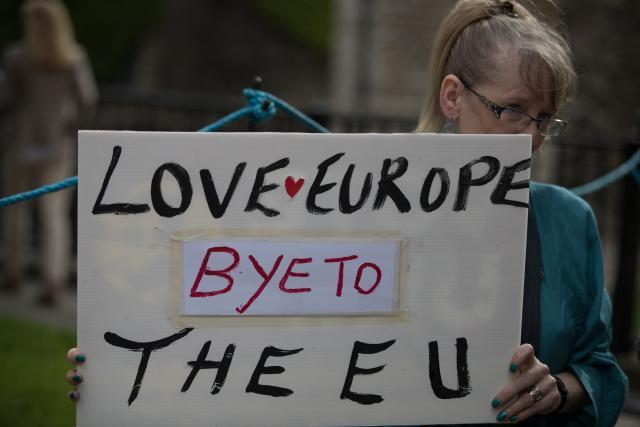 LOVE ♥ EUROPE
BYE TO
THE EU